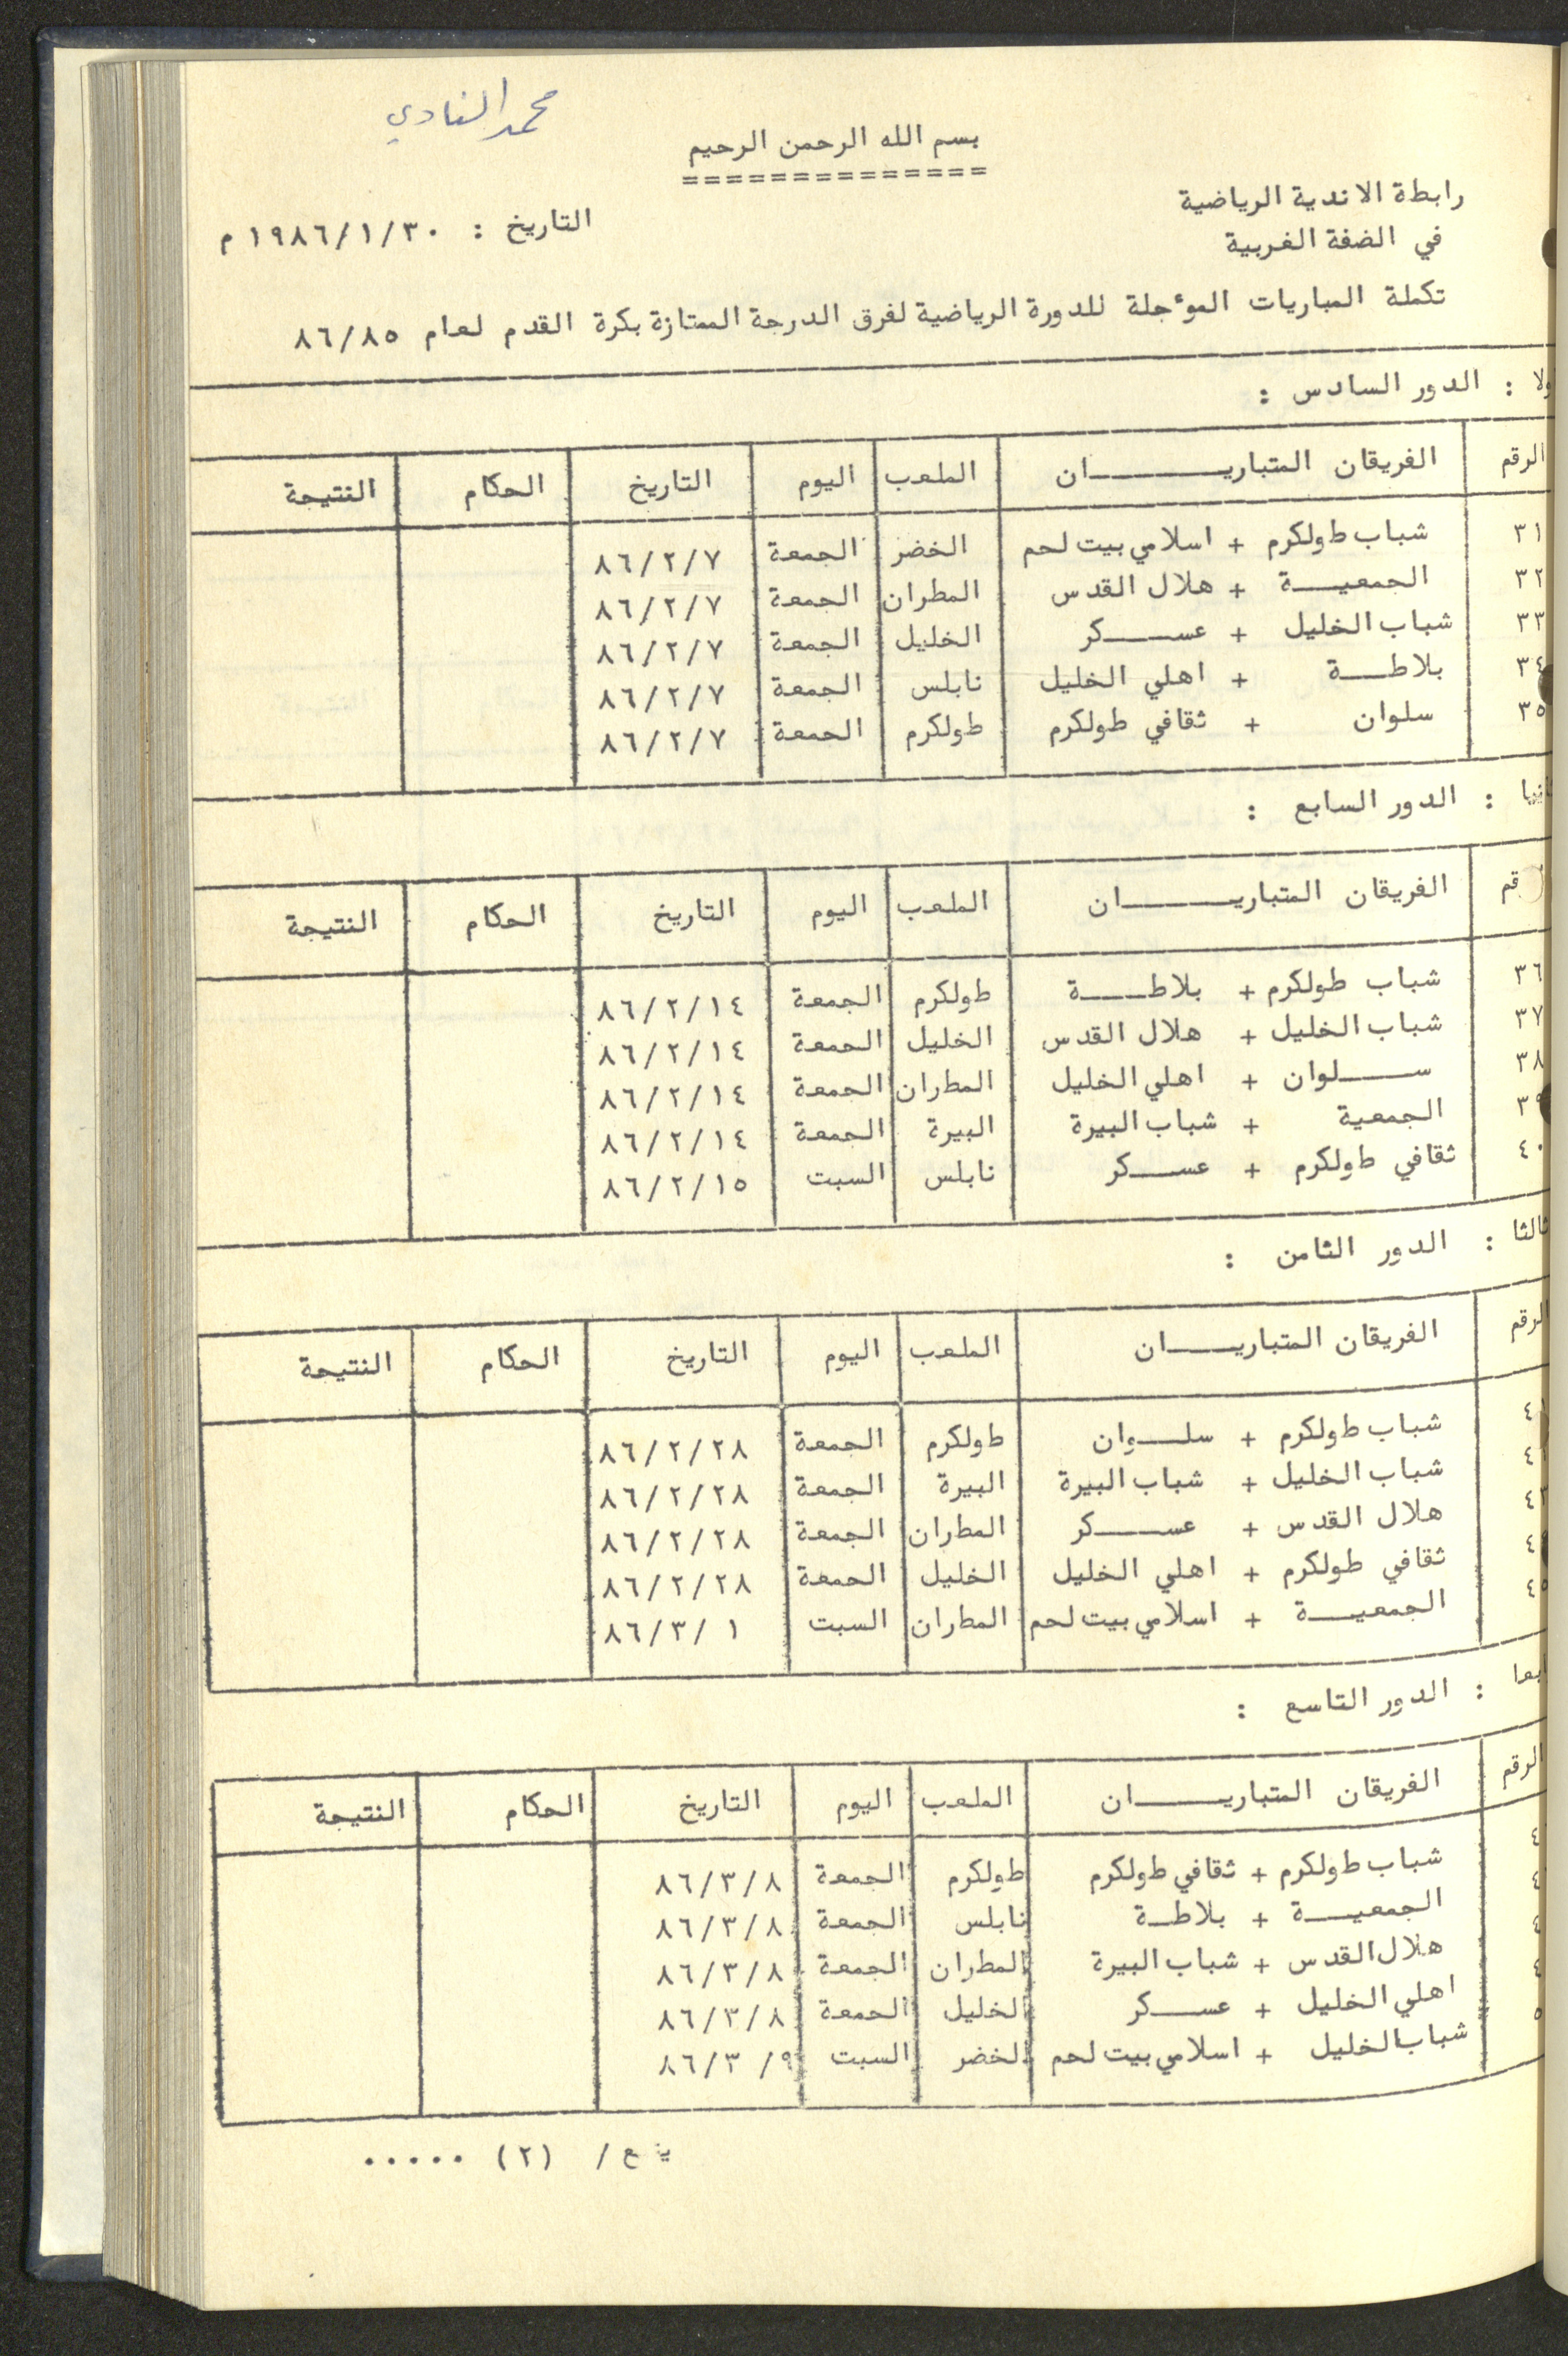 محمد النادي
بسم الله الرحمن الرحيم
==============
رابطة الاندية الرياضية
في الضفة الغربية
التاريخ : ١٩٨٦/١/٣٠ م
تكملة المباريات الموءجلة للدورة الرياضية لفرق الدرجة الممتازة بكرة القدم لعام ٨٦/٨٥
ولا : الدور السادس :
الرقم الفريقان المتباريــــــان الملعب اليوم التاريخ الحكام النتيجة
٣١ شباب طولكرم + اسلامي بيت لحم الخضر الجمعة ٨٦/٢/٧
٣٢ الجمعيـــة + هلال القدس المطران الجمعة ٨٦/٢/٧
٣٣ شباب الخليل + عســـكر الخليل الجمعة ٨٦/٢/٧
٣٤ بلاطـــة + اهلي الخليل نابلس الجمعة ٨٦/٢/٧
٣٥ سلوان + ثقافي طولكرم طولكرم الجمعة ٨٦/٢/٧
انيا : الدور السابع :
رقم الفريقان المتباريـــــان الملعب اليوم التاريخ الحكام النتيجة
٣٦ شباب طولكرم + بلاطـــة طولكرم الجمعة ٨٦/٢/١٤
٣٧ شباب الخليل + هلال القدس الخليل الجمعة ٨٦/٢/١٤
٣٨ ســـلوان + اهلي الخليل المطران الجمعة ٨٦/٢/١٤
٣٩ الجمعية + شباب البيرة البيرة الجمعة ٨٦/٢/١٤
٤٠ ثقافي طولكرم + عســـكر نابلس السبت ٨٦/٢/١٥
ثالثا : الدور الثامن :
الرقم الفريقان المتباريـــــان الملعب اليوم التاريخ الحكام النتيجة
٤ شباب طولكرم + سلـــوان طولكرم الجمعة ٨٦/٢/٢٨
٤ شباب الخليل + شباب البيرة البيرة الجمعة ٨٦/٢/٢٨
٤٣ هلال القدس + عســـكر المطران الجمعة ٨٦/٢/٢٨
٤ ثقافي طولكرم + اهلي الخليل الخليل الجمعة ٨٦/٢/٢٨
٤٥ الجمعيـــة + اسلامي بيت لحم المطران السبت ٨٦/٣/ ١
ابعا : الدور التاسع :
الرقم الفريقان المتباريـــــان الملعب اليوم التاريخ الحكام النتيجة
٤ شباب طولكرم + ثقافي طولكرم طولكرم الجمعة ٨٦/٣/٨
٤ الجمعيـــة + بلاطـة نابلس الجمعة ٨٦/٣/٨
٤ هلال القدس + شباب البيرة المطران الجمعة ٨٦/٣/٨
٤ اهلي الخليل + عســـكر الخليل الجمعة ٨٦/٣/٨
٥ شباب الخليل + اسلامي بيت لحم الخضر السبت ٨٦/٣ /٩
يتبع / (٢) .....